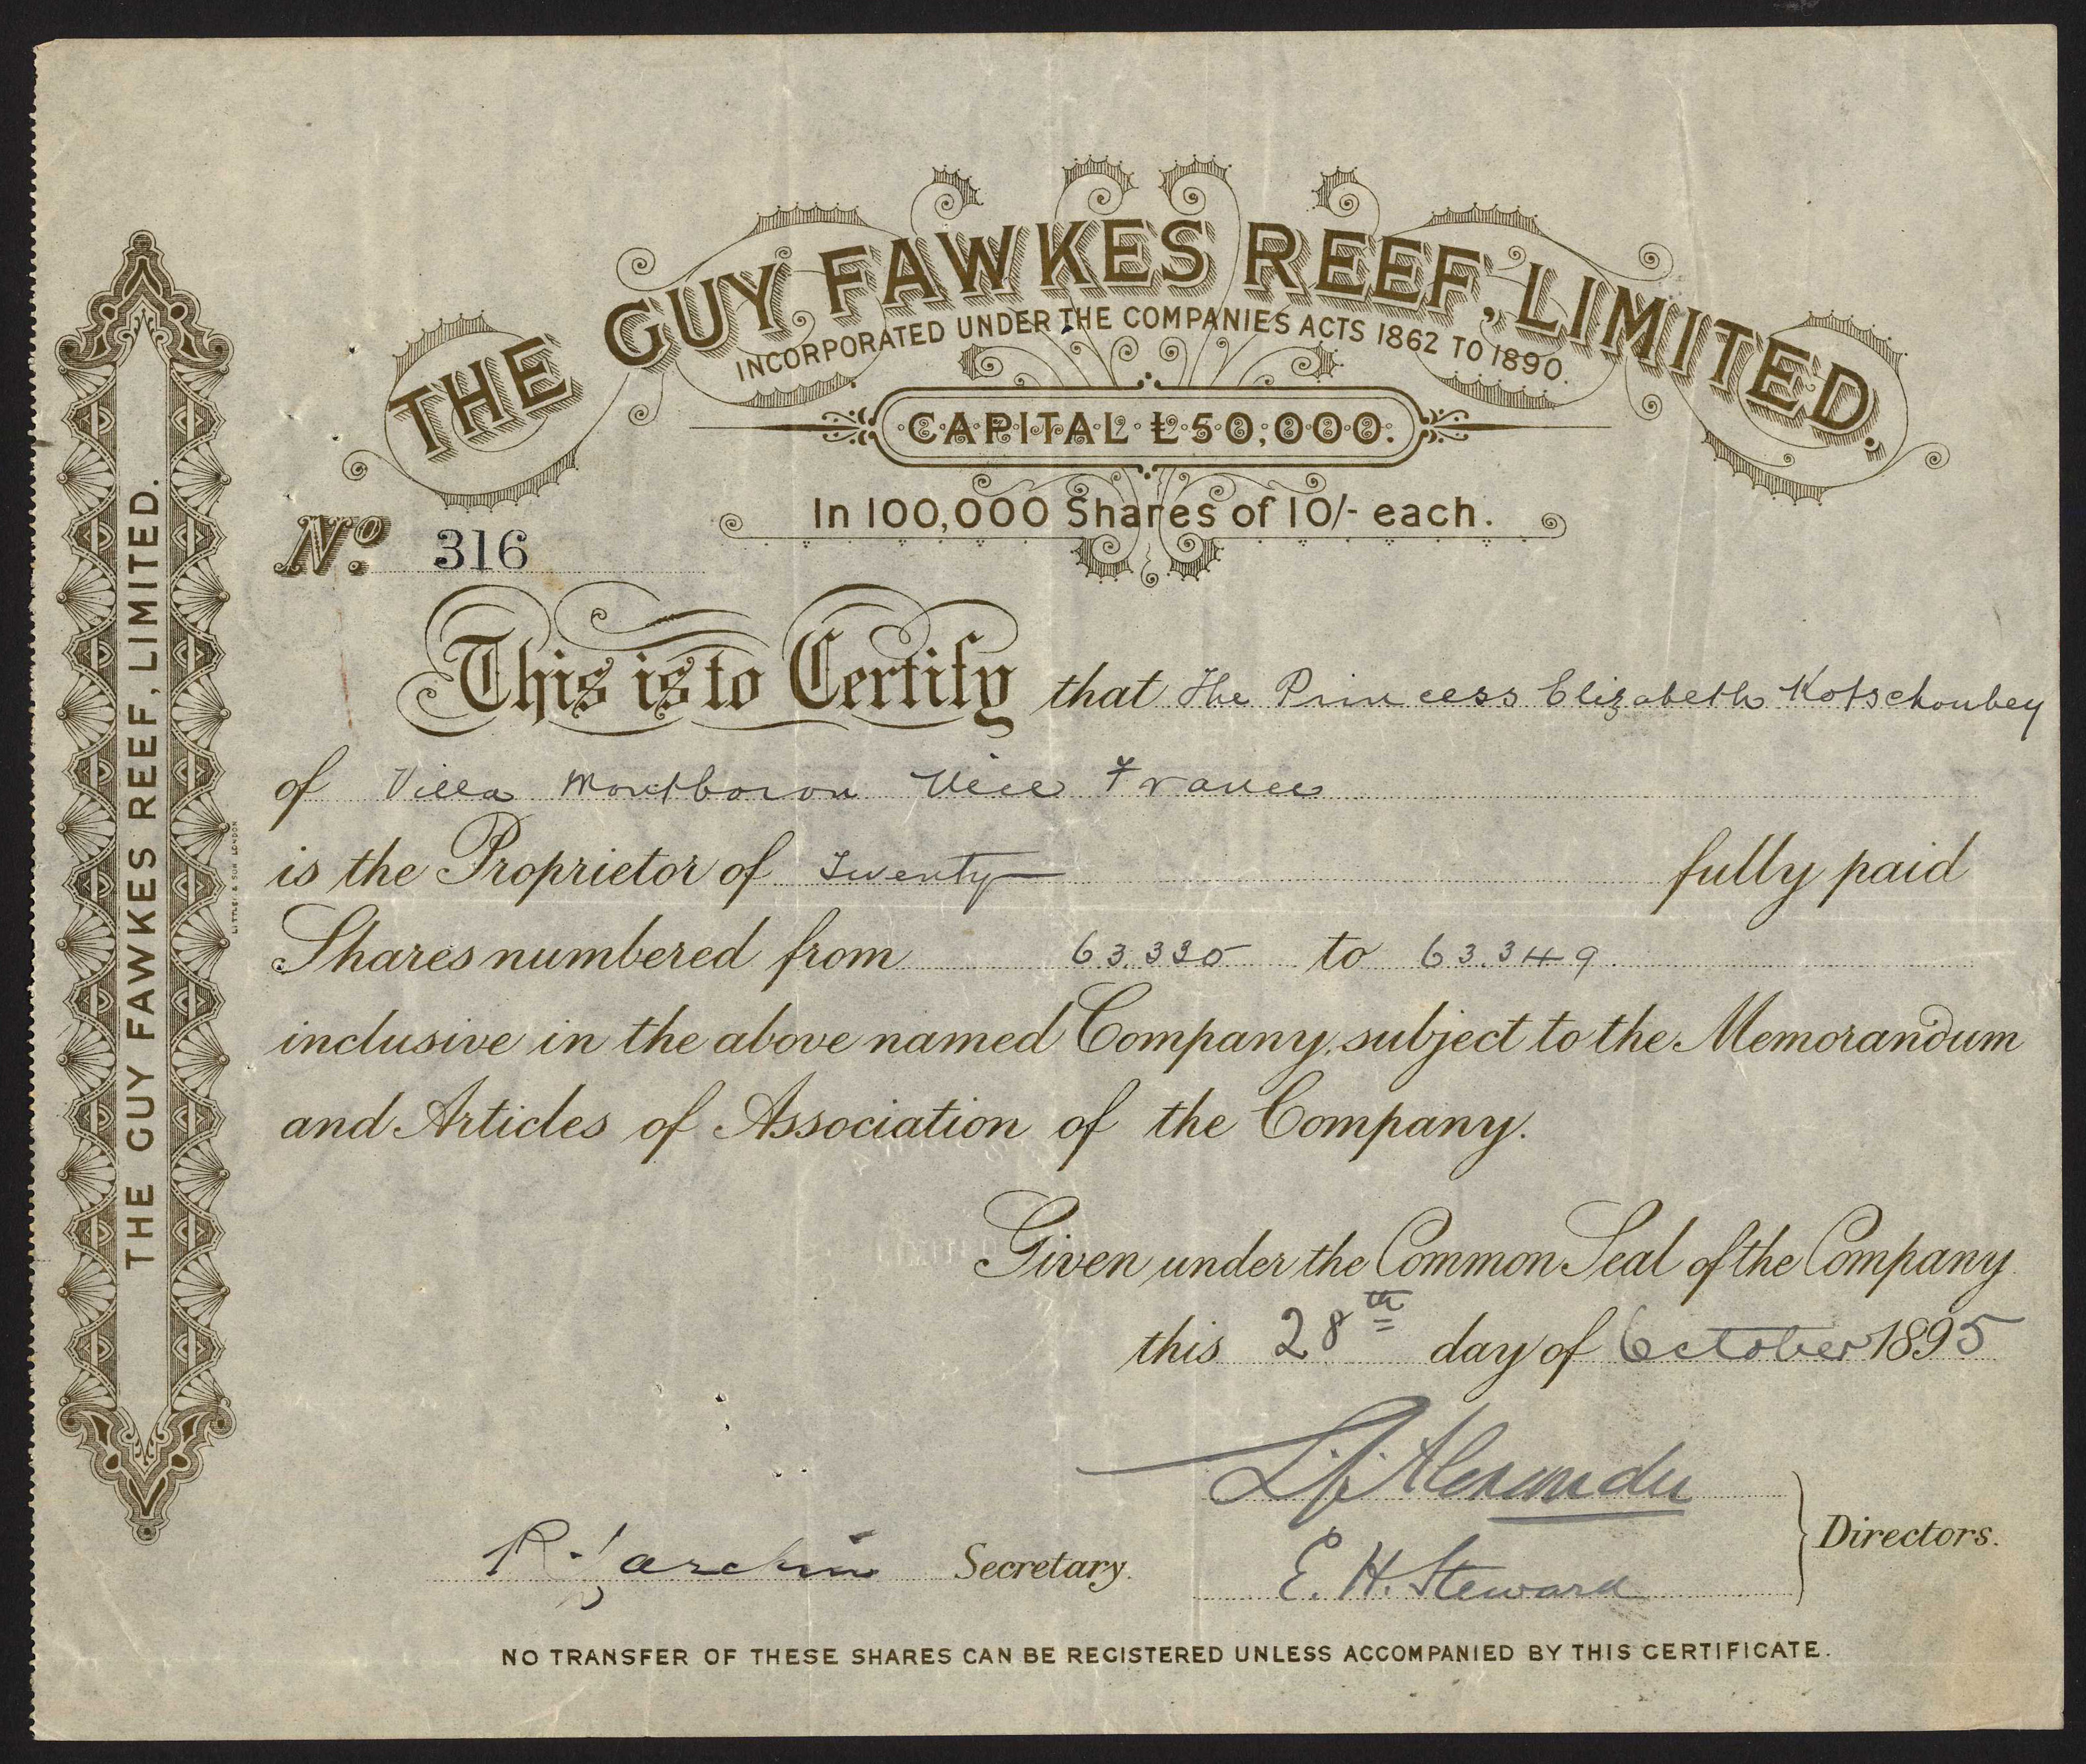 THE GUY FAWKES REEF, LIMITED.
INCORPORATED UNDER THE COMPANIES ACTS 1862 TO 1890.
CAPITAL £50,000.
In 100,000 Shares of 10/- each.
No. 316
This is to Certify that The Princess Elizabeth Kotschoubey
of Villa Montboron Nice France
is the Proprietor of Twenty fully paid
Shares numbered from 63.330 to 63.349
inclusive in the above named Company, subject to the Memorandum
and Articles of Association of the Company.
Given under the Common Seal of the Company
this 28th day of October 1895
Alexander
E. H. Steward
Directors.
Secretary.
NO TRANSFER OF THESE SHARES CAN BE REGISTERED UNLESS ACCOMPANIED BY THIS CERTIFICATE.
THE GUY FAWKES REEF, LIMITED.
& SON LONDON